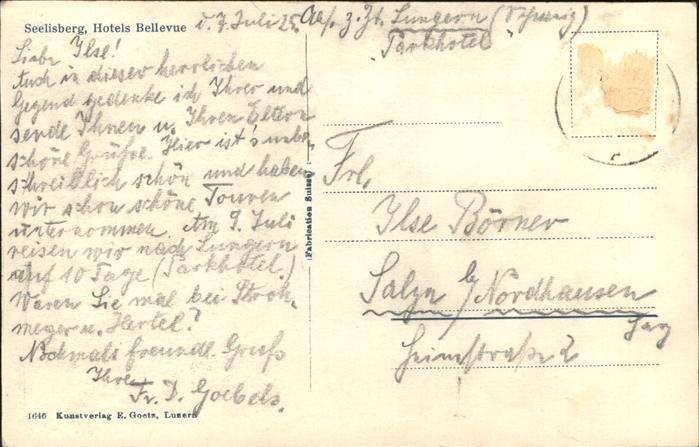 Seelisberg, Hotels Bellevue
d. 7. Juli 25.
Abs. z. Zt. Lungern (Schweiz)
"Parkhotel"
Liebe Ilse!
Auch in dieser herrlichen
Gegend gedenke ich Ihrer und
sende Ihnen u. Ihren Eltern
schöne Grüße. Hier ist's unbe-
schreiblich schön und haben
wir schon schöne Touren
unternommen. Am 9. Juli
reisen wir nach Lungern
auf 10 Tage (Parkhotel.)
Waren Sie mal bei Stroh-
meyer u. Hertel?
Nochmals freundl. Gruß
Ihre
Fr. D. Goebels.
1646 Kunstverlag E. Goetz, Luzern
Fabrication Suisse
Frl.
Ilse Börner
Salza b/ Nordhausen
Harz
Heimstraße 2